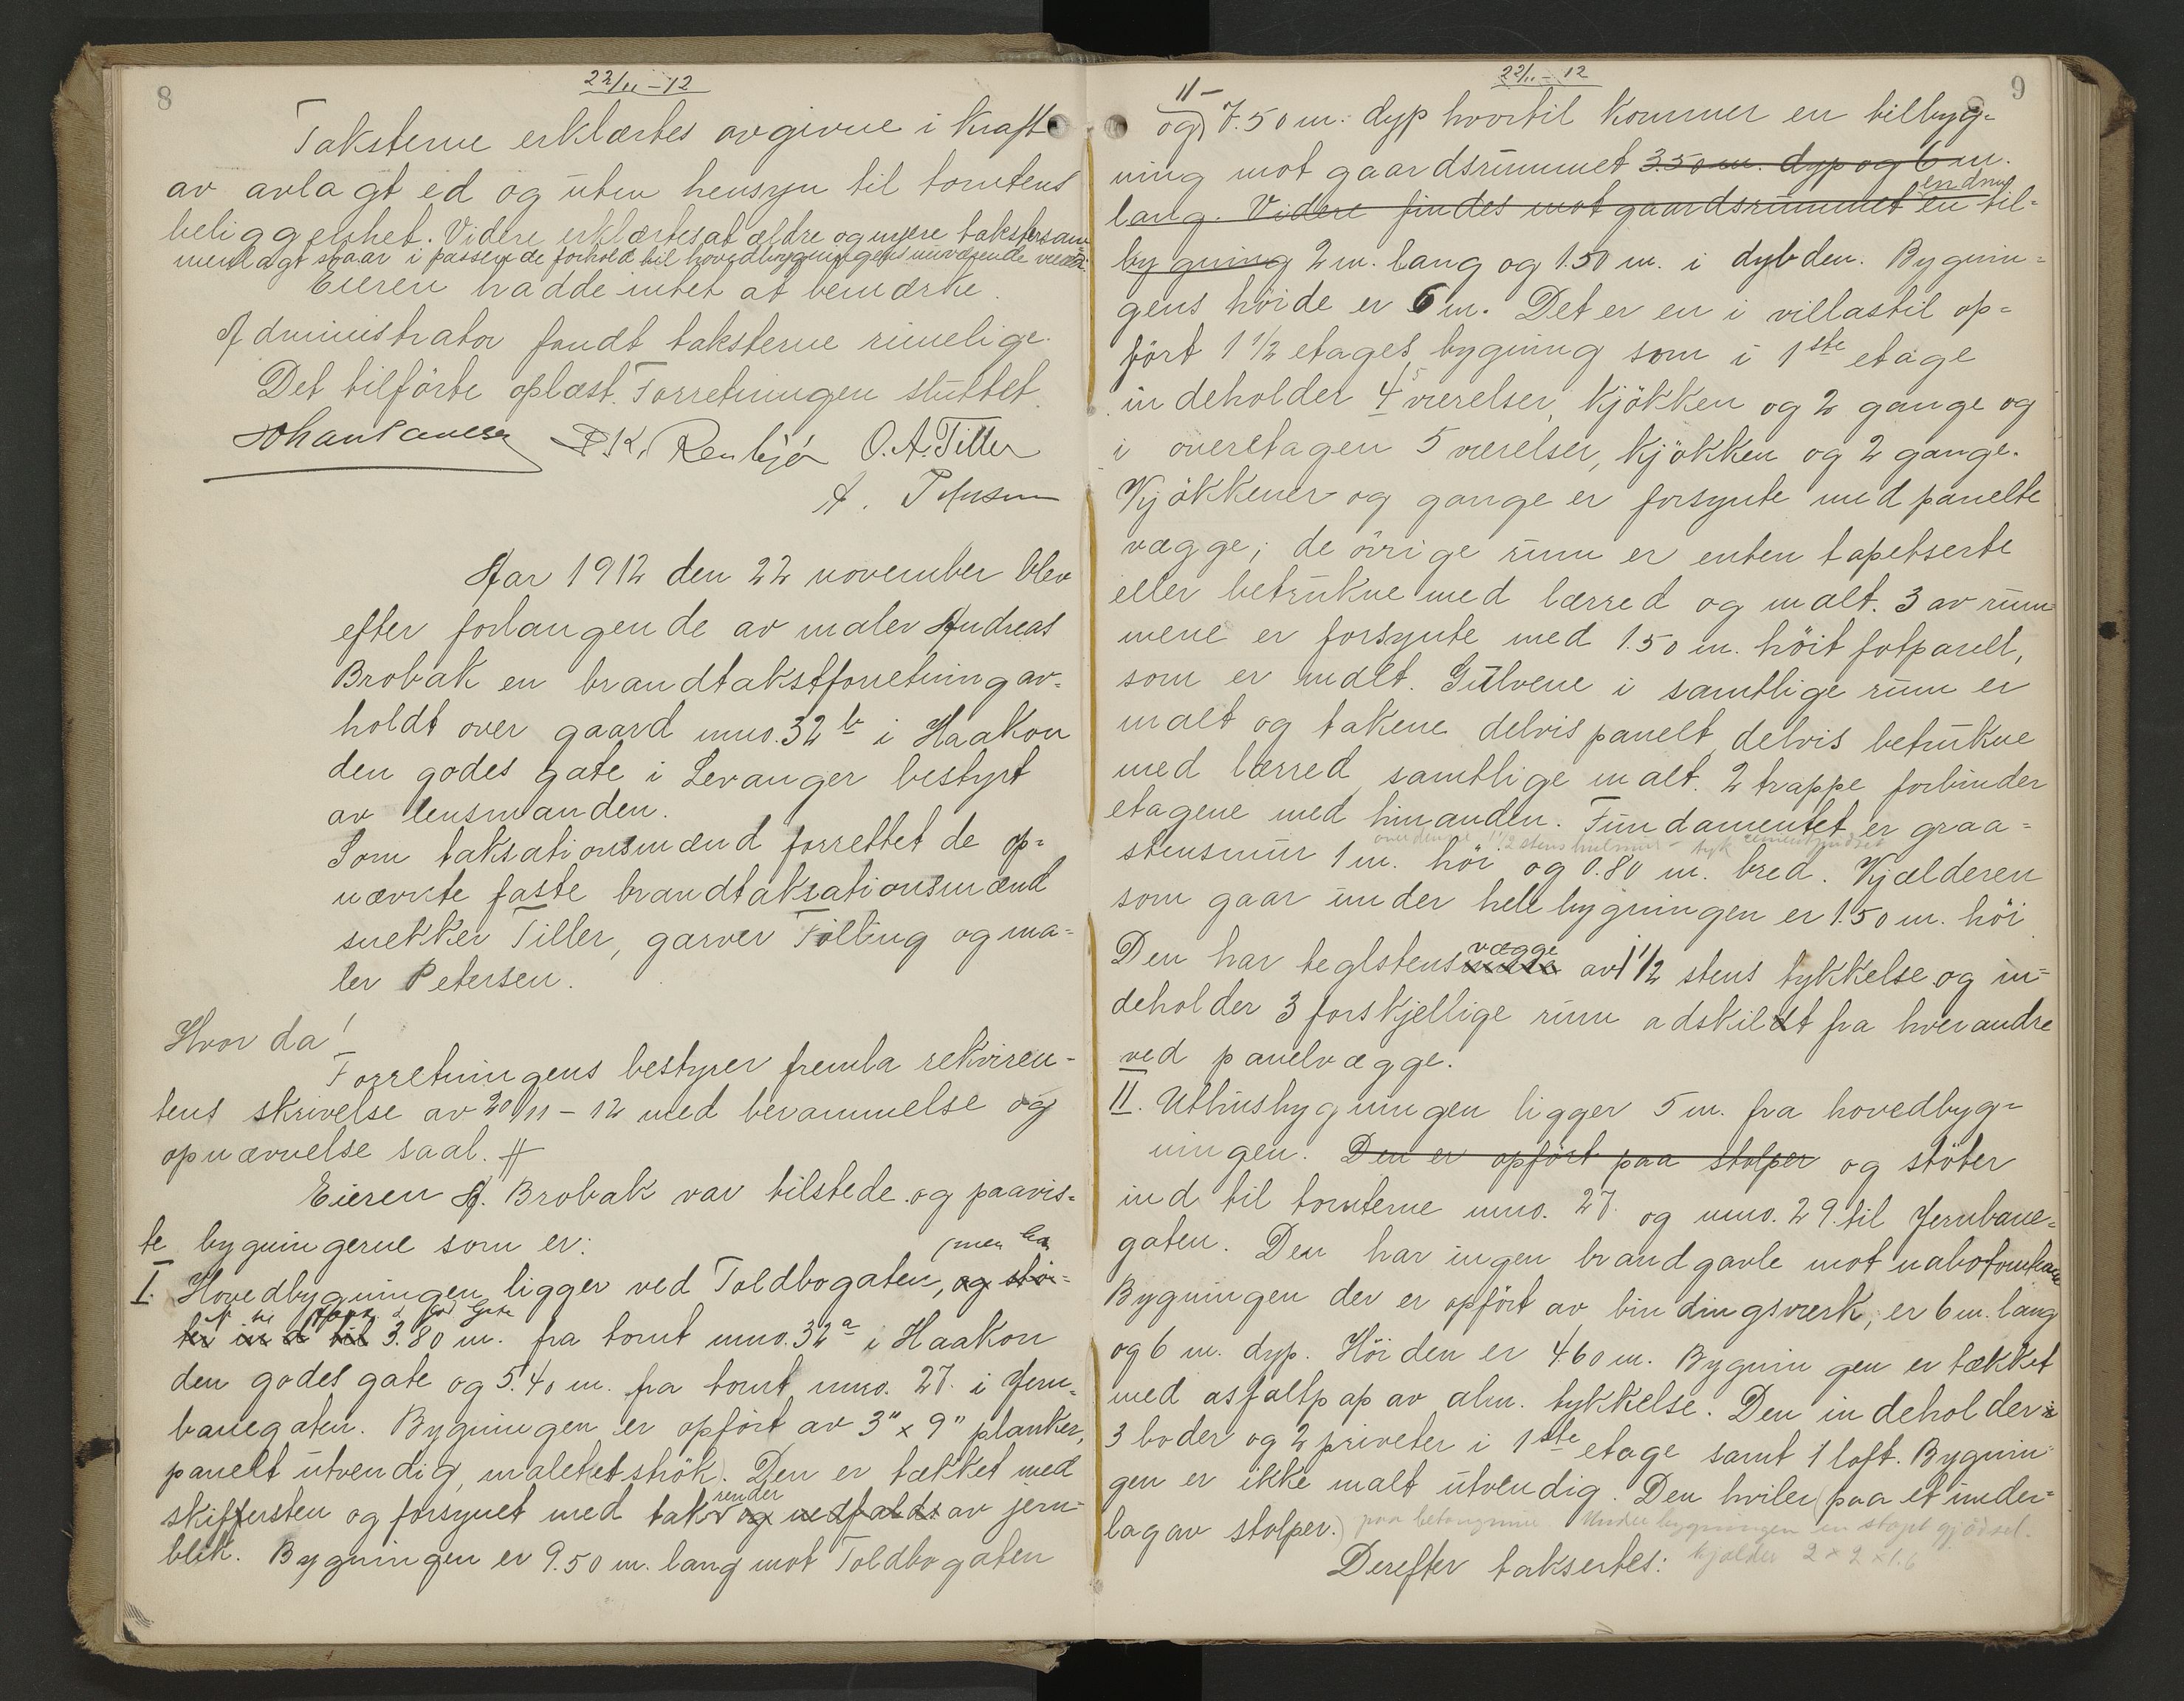 8
22/11 - 12
Taksterne erklærtes avgivne i kraft
av avlagt ed og uten hensyn til tomtens
beliggenhet. Videre erklærtes at ældre og nyere takster sam
menlagt staar i passende forhold til hovedbygningens nuværende værdi.
Eieren hadde intet at bemærke.
Administrator fandt taksterne rimelige.
Det tilförte oplæst. Forretningen sluttet.
O. A. Tiller
A. Petersen
Aar 1912 den 22 november blev
efter forlangende av maler Andreas
Brobak en brandtakstforretning av=
holdt over gaard mno. 32 b i Haakon
den godes gate i Levanger bestyrt
av lensmanden.
Som taksationsmænd forrettet de op=
nævnte faste brandtaksationsmænd
snekker Tiller, garver Tolling og ma=
ler Petersen.
Hvor da!
Forretningens bestyrer fremla rekviren-
tens skrivelse av 20/11 - 12 med berammelse og
opnævnelse saal. #
Eieren A. Brobak var tilstede og paavis=
te bygningerne som er:
(men
I. Hovedbygningen ligger ved Toldbogaten, og stö=
Haak. d. God. Gate
ter ind til 3.80 m. fra tomt mno. 32 a i Haakon
den godes gate og 5.40 m. fra tomt mno. 27. i Jern=
banegaten. Bygningen er opfört av 3" x 9" planker,
panelt utvendig, malet et strök). Den er tækket med
render
skiffersten og forsynet med tak og nedfalds av jern=
blik. Bygningen er 9.50 m. lang mot Toldbogaten
9
22/11 - 12
11 -
og) 7.50 m. dyp hvortil kommer en tilbyg=
ning mot gaardsrummet 3.50 m. dyp og 6 m.
endnu
lang. Videre findes mot gaardsrummet en til=
bygning 2 m. lang og 1.50 m. i dybden. Bygnin=
gens höide er 6 m. Det er en i villastil op=
fört 1 1/2 etages bygning som i 1ste etage
5
indeholder 4 værelser, kjökken og 2 gange og
i överetagen 5 værelser, kjökken og 2 gange.
Kjökkener og gange er forsynte med panelte
vægge; de övrige rum er enten tapetserte
eller betrukne med lærred og malt. 3 av rum=
mene er forsynte med 1.50 m. höit fotpanel,
som er malt. Gulvene i samtlige rum er
malt og takene delvis panelt, delvis betrukne
med lærred, samtlige malt. 2 trappe forbinder
etagene med hinanden. Fundamentet er graa=
over denne 1 1/2 stens hulmur - tyk cementpudset
stensmur 1 m. höi og 0.80 m. bred. Kjælderen
som gaar under hele bygningen er 1.50 m. höi
vægge
Den har teglstens av 1 1/2 stens tykkelse og in=
deholder 3 forskjellige rum adskildt fra hverandre
ved panelvægge.
II. Uthusbygningen ligger 5 m. fra hovedbyg=
ningen. Den er opfört paa stolper og stöter
ind til tomterne mno. 27. og mno. 29. til Jernbane=
gaten. Den har ingen brandgavle mot nabotomtene
Bygningen der er opfört av bindingsværk, er 6 m. lang
og 6 m. dyp. Höiden er 4.60 m. Bygningen er tækket
med asfaltpap av alm. tykkelse. Den indeholder
3 boder og 2 priveter i 1ste etage samt 1 loft. Bygnin=
gen er ikke malt utvendig. Den hviler (paa et under=
lag av stolper.) paa betongmur Under bygningen en stöpt gjödsel-
kjælder 2 x 2 x 1.6
Derefter taksertes: